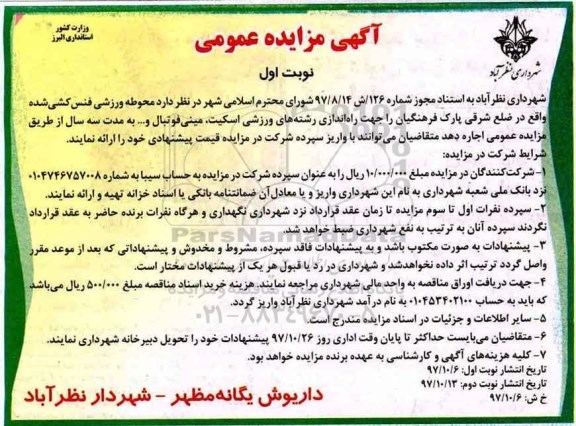 وزارت کشور
استانداری البرز
آگهی مزایده عمومی
شهرداری نظرآباد
نوبت اول
شهرداری نظرآباد به استناد مجوز شماره ۱۲۶/ش ۹۷/۸/۱۴ شورای محترم اسلامی شهر در نظر دارد محوطه ورزشی فنس‌کشی‌شده
واقع در ضلع شرقی پارک فرهنگیان را جهت راه‌اندازی رشته‌های ورزشی اسکیت، مینی‌فوتبال و... به مدت سه سال از طریق
مزایده عمومی اجاره دهد متقاضیان می‌توانند با واریز سپرده شرکت در مزایده قیمت پیشنهادی خود را ارائه نمایند.
شرایط شرکت در مزایده:
۱- شرکت‌کنندگان در مزایده مبلغ ۱۰/۰۰۰/۰۰۰ ریال را به عنوان سپرده شرکت در مزایده به حساب سیبا به شماره ۰۱۰۴۷۴۶۷۵۷۰۰۸
نزد بانک ملی شعبه شهرداری به نام این شهرداری واریز و یا معادل آن ضمانتنامه بانکی یا اسناد خزانه تهیه و ارائه نمایند.
۲- سپرده نفرات اول تا سوم مزایده تا زمان عقد قرارداد نزد شهرداری نگهداری و هرگاه نفرات برنده حاضر به عقد قرارداد
نگردند سپرده آنان به ترتیب به نفع شهرداری ضبط خواهد شد.
۳- پیشنهادات به صورت مکتوب باشد و به پیشنهادات فاقد سپرده، مشروط و مخدوش و پیشنهاداتی که بعد از موعد مقرر
واصل گردد ترتیب اثر داده نخواهدشد و شهرداری در رد یا قبول هر یک از پیشنهادات مختار است.
۴- جهت دریافت اوراق مناقصه به واحد مالی شهرداری مراجعه نمایند. هزینه خرید اسناد مناقصه مبلغ ۵۰۰/۰۰۰ ریال می‌باشد
که باید به حساب ۰۱۰۴۵۳۴۰۲۱۰۰ به نام درآمد شهرداری نظرآباد واریز گردد.
۵- سایر اطلاعات و جزئیات در اسناد مزایده مندرج است.
۶- متقاضیان می‌بایست حداکثر تا پایان وقت اداری روز ۹۷/۱۰/۲۶ پیشنهادات خود را تحویل دبیرخانه شهرداری نمایند.
۷- کلیه هزینه‌های آگهی و کارشناسی به عهده برنده مزایده خواهد بود.
تاریخ انتشار نوبت اول: ۹۷/۱۰/۶
تاریخ انتشار نوبت دوم: ۹۷/۱۰/۱۳
خ ش: ۹۷/۱۰/۶
داریوش یگانه‌مظهر - شهردار نظرآباد
ParsNamadData
۰۲۱-۸۸۳۴۹۶۷۰-۵